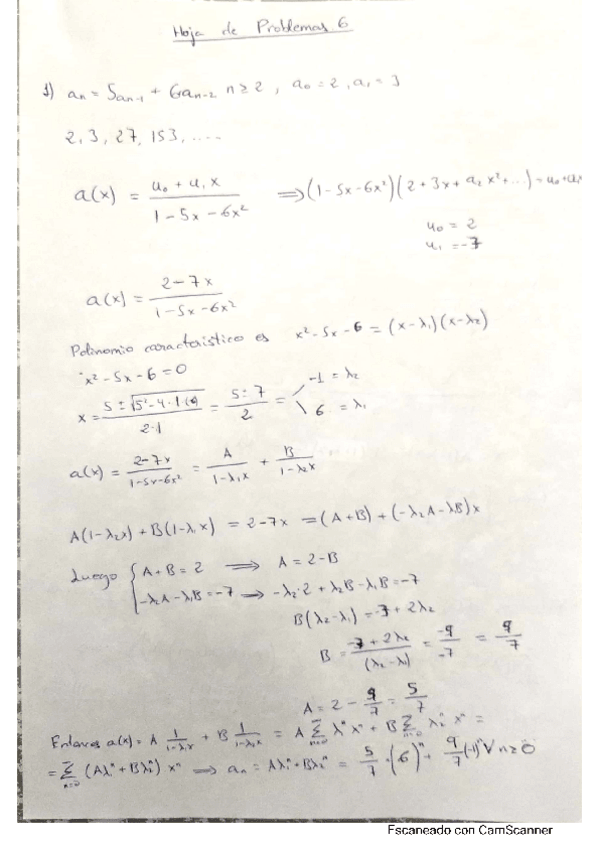 Hoja de Problemas 6
1) aₙ = 5aₙ₋₁ + 6aₙ₋₂ n ≥ 2 , a₀ = 2 , a₁ = 3
2, 3, 27, 153, ....
a(x) = (u₀ + u₁x)/(1 - 5x - 6x²) ⟹ (1 - 5x - 6x²)(2 + 3x + a₂x² + ...) = u₀ + u₁
u₀ = 2
u₁ = -7
a(x) = (2 - 7x)/(1 - 5x - 6x²)
Polinomio caracteristico es x² - 5x - 6 = (x - λ₁)(x - λ₂)
x² - 5x - 6 = 0
x = (5 ± √(5² - 4·1·(-6)))/(2·1) = (5 ± 7)/2 = -1 = λ₂
6 = λ₁
a(x) = (2 - 7x)/(1 - 5x - 6x²) = A/(1 - λ₁x) + B/(1 - λ₂x)
A(1 - λ₂x) + B(1 - λ₁x) = 2 - 7x = (A + B) + (-λ₂A - λ₁B)x
Luego { A + B = 2 ⟹ A = 2 - B
-λ₂A - λ₁B = -7 → -λ₂·2 + λ₂B - λ₁B = -7
B(λ₂ - λ₁) = -7 + 2λ₂
B = (-7 + 2λ₂)/(λ₂ - λ₁) = -9/-7 = 9/7
A = 2 - 9/7 = 5/7
Entonces a(x) = A 1/(1 - λ₁x) + B 1/(1 - λ₂x) = A ∑ₙ₌₀ λ₁ⁿ xⁿ + B ∑ₙ₌₀ λ₂ⁿ xⁿ =
= ∑ₙ₌₀ (Aλ₁ⁿ + Bλ₂ⁿ) xⁿ ⟹ aₙ = Aλ₁ⁿ + Bλ₂ⁿ = 5/7 · (6)ⁿ + 9/7 (-1)ⁿ ∀ n ≥ 0
Escaneado con CamScanner